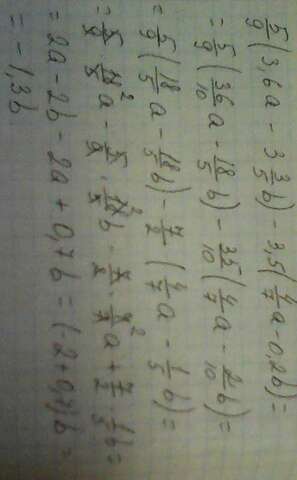 5/9(3,6a - 3 3/5 b) - 3,5(4/7 a - 0,2b) =
= 5/9(36/10 a - 18/5 b) - 35/10(4/7 a - 2/10 b) =
= 5/9(18/5 a - 18/5 b) - 7/2(4/7 a - 1/5 b) =
= 5/9 · 18/5 a - 5/9 · 18/5 b - 7/2 · 4/7 a + 7/2 · 1/5 b =
= 2a - 2b - 2a + 0,7b = (-2+0,7)b =
= -1,3b